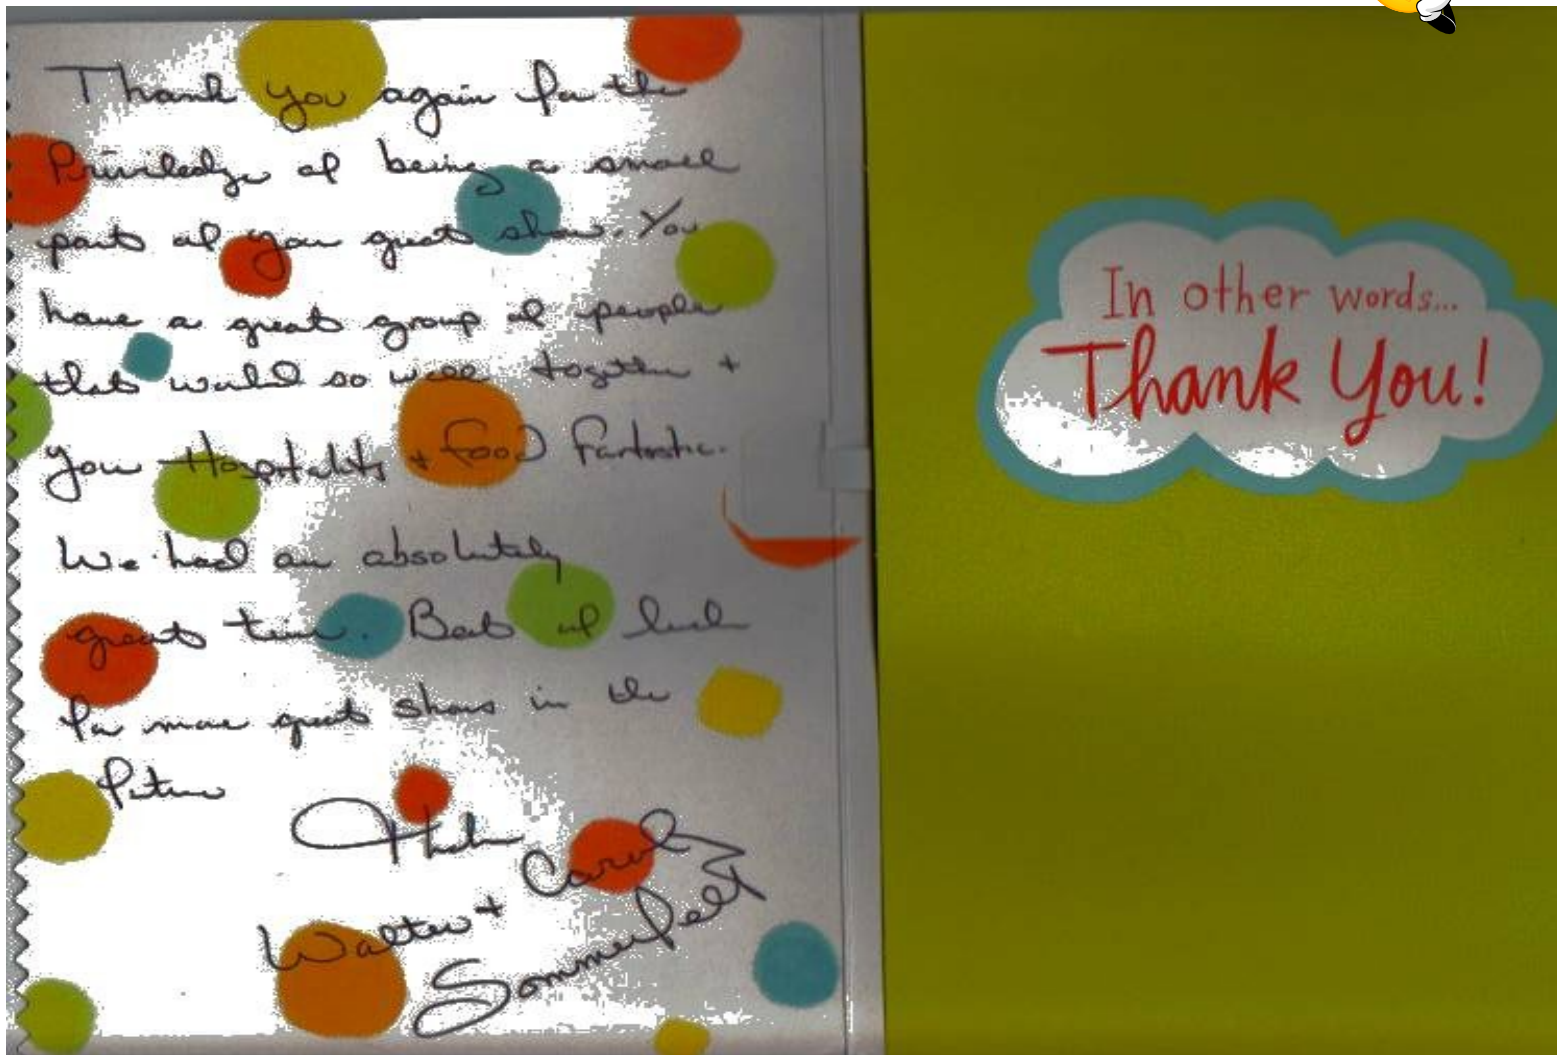 Thank you again for the
Priviledge of being a small
part of your great show. You
have a great group of people
that work so well together +
your Hospitality + food Fantastic.
We had an absolutely
great time. Best of luck
for more great shows in the
future
Walter + Carol
Sommerfelt
In other words...
Thank You!